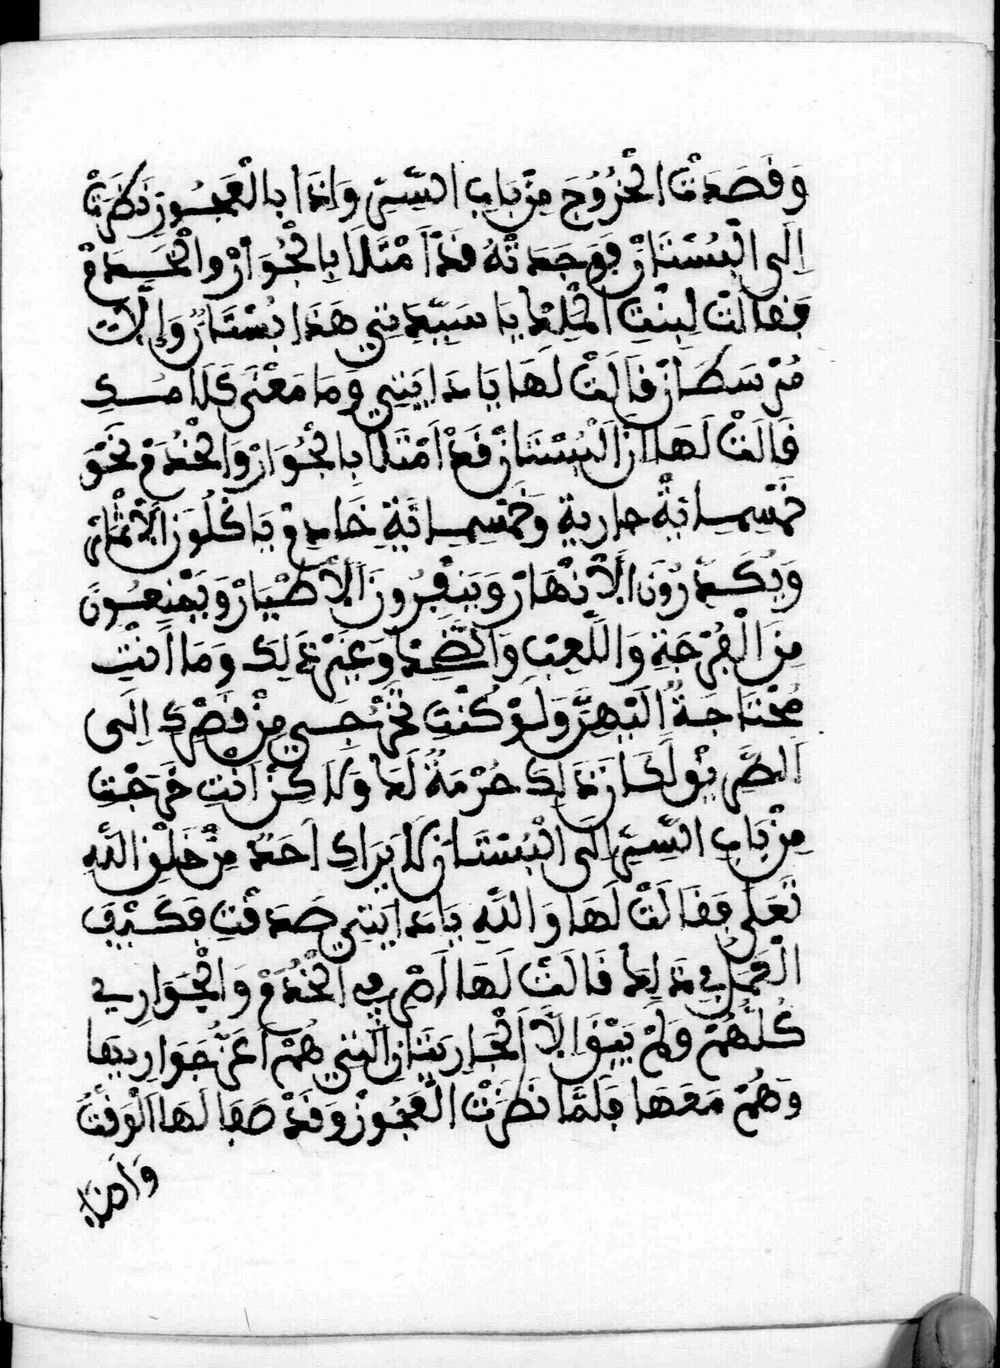 وَقَصَدَتْ الْخُرُوجَ مِنْ بَابِ السِّرِّ وَإِذَا بِالْعَجُوزِ نَظَرَتْ
إِلَى الْبُسْتَانْ فَوَجَدَتْهُ قَدْ اَمْتَلَا بِالْجُوَارْ وَالْخَدَمْ
فَقَالَتْ لِبِنْتِ الْمَلِكْ يَا سَيِّدَتِي هَذَا بُسْتَانٌ وَإِلَّا
مُرْسَطَانْ قَالَتْ لَهَا يَا دَايَتِي وَمَا مَعْنَى كَلَامِكِ
قَالَتْ لَهَا اَنَّ الْبُسْتَانْ قَدْ اَمْتَلَا بِالْجُوَارْ وَالْخُدَمْ نَحْوَ
خَمْسِمِائَةْ جارية وَخَمْسِمِائَةِ خَادِمْ يَاكُلُونَ الْأَثْمَارْ
وَيُكَدِّرُونَ الْأَنْهَارْ وَيَنْفِرُونَ الْأَطْيَارْ وَيَمْنَعُونَ
مِنَ الْفُرْجَةِ وَاللَّعِبِ وَالضِّحْكِ وَغَيْرِ ذَلِكَ وَمَا اَنْتِ
مُحْتَاجَةٌ إِلَيْهِنَّ وَلَوْ كُنْتِ تَخْرُجِي مِنْ قَصْرِكِ اِلَى
الطَّرِيقْ لَكَانَ ذَلِكَ حُرْمَةً لَكِ وَلَاكِنْ اَنْتِ خَرَجْتِ
مِنْ بَابِ السِّرِّ إِلَى الْبُسْتَانْ لَا يَرَاكِ اَحَدٌ مِنْ خَلْقِ اللَّهِ
تَعَلَى فَقَالَتْ لَهَا وَاللَّهِ يَا دَايَتِي صَدَقْتِ فَكَيْفَ
الْعَمَلْ فِي ذَلِكَ قَالَتْ لَهَا اَصْرِفِي الْخُدَمْ وَالْجَوَارِي
كُلَّهُمْ وَلَمْ يَبْقَوا إِلَّا اَلْجَارِيَتَانِ الَّتِي هُمْ اَعَزُّ جَوَارِيهَا
وَهُمْ مَعَهَا فَلَمَّا نَظَرَتْ الْعَجُوزْ وَقَدْ صَفَا لَهَا الْوَقْتُ